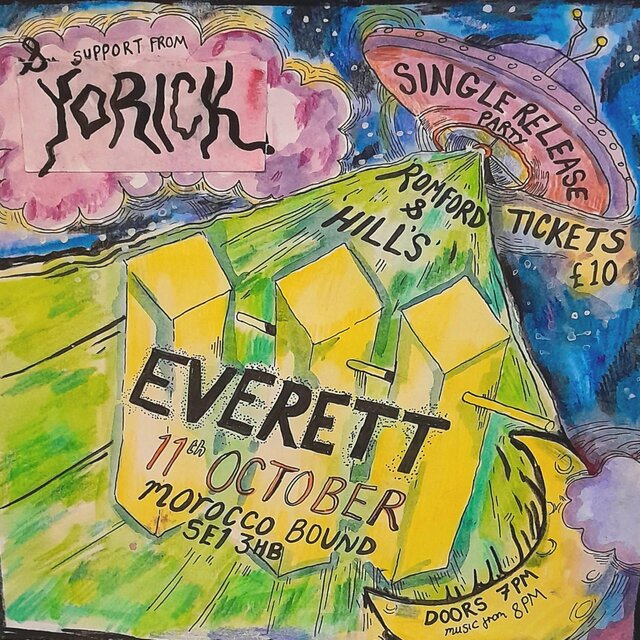 & SUPPORT FROM
YORICK.
SINGLE RELEASE
PARTY
ROMFORD
&
HILL'S
TICKETS
£10
EVERETT
11th OCTOBER
MOROCCO BOUND
SE1 3HB
DOORS 7PM
music from 8PM